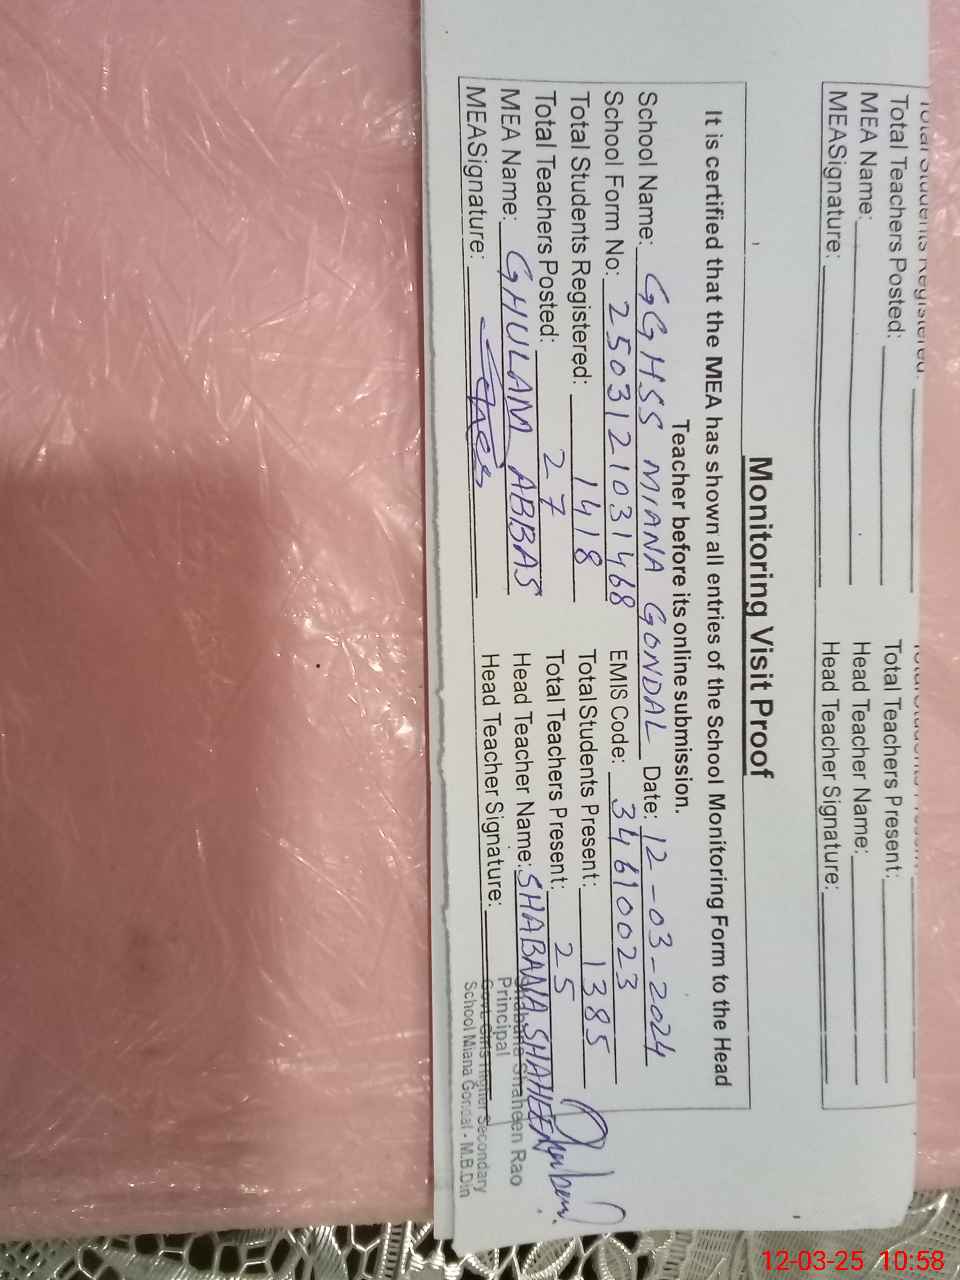 Total Students Registered:
Total Teachers Posted: Total Teachers Present:
MEA Name: Head Teacher Name:
MEASignature: Head Teacher Signature:
Monitoring Visit Proof
It is certified that the MEA has shown all entries of the School Monitoring Form to the Head
Teacher before its online submission.
School Name: GGHSS MIANA GONDAL Date: 12-03-2024
School Form No: 2503121031468 EMIS Code: 34610023
Total Students Registered: 1418 Total Students Present: 1385
Total Teachers Posted: 27 Total Teachers Present: 25
MEA Name: GHULAM ABBAS Head Teacher Name: SHABANA SHAHEEN
MEASignature: Head Teacher Signature:
Shabana Shaheen Rao
Principal
Govt. Girls Higher Secondary
School Miana Gondal - M.B.Din
12-03-25 10:58